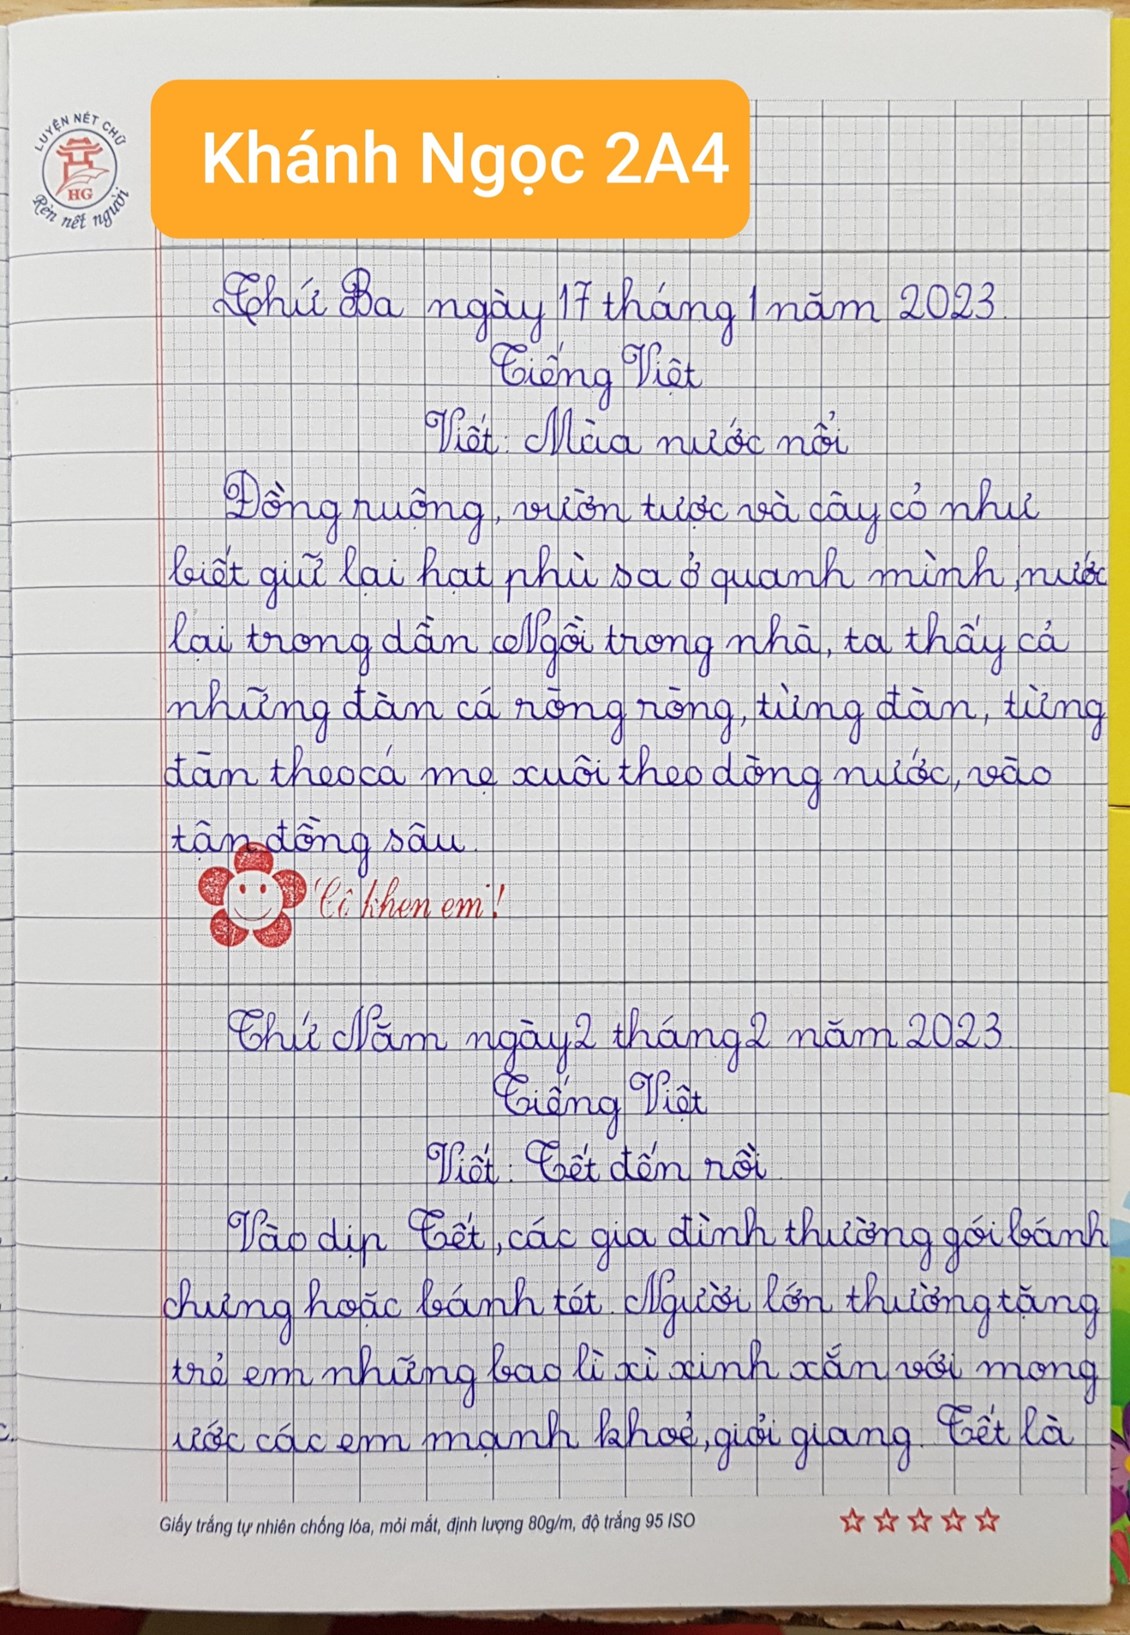 LUYỆN NÉT CHỮ
HG
Rèn nết người
Khánh Ngọc 2A4
Thứ Ba ngày 17 tháng 1 năm 2023.
Tiếng Việt
Viết: Mùa nước nổi
Đồng ruộng, vườn tược và cây cỏ như
biết giữ lại hạt phù sa ở quanh mình, nước
lại trong dần. Ngồi trong nhà, ta thấy cả
những đàn cá ròng ròng, từng đàn, từng
đàn theo cá mẹ xuôi theo dòng nước, vào
tận đồng sâu.
Cô khen em!
Thứ Năm ngày 2 tháng 2 năm 2023.
Tiếng Việt
Viết: Tết đến rồi.
Vào dịp Tết, các gia đình thường gói bánh
chưng hoặc bánh tét. Người lớn thường tặng
trẻ em những bao lì xì xinh xắn với mong
ước các em mạnh khoẻ, giỏi giang. Tết là
Giấy trắng tự nhiên chống lóa, mỏi mắt, định lượng 80g/m, độ trắng 95 ISO